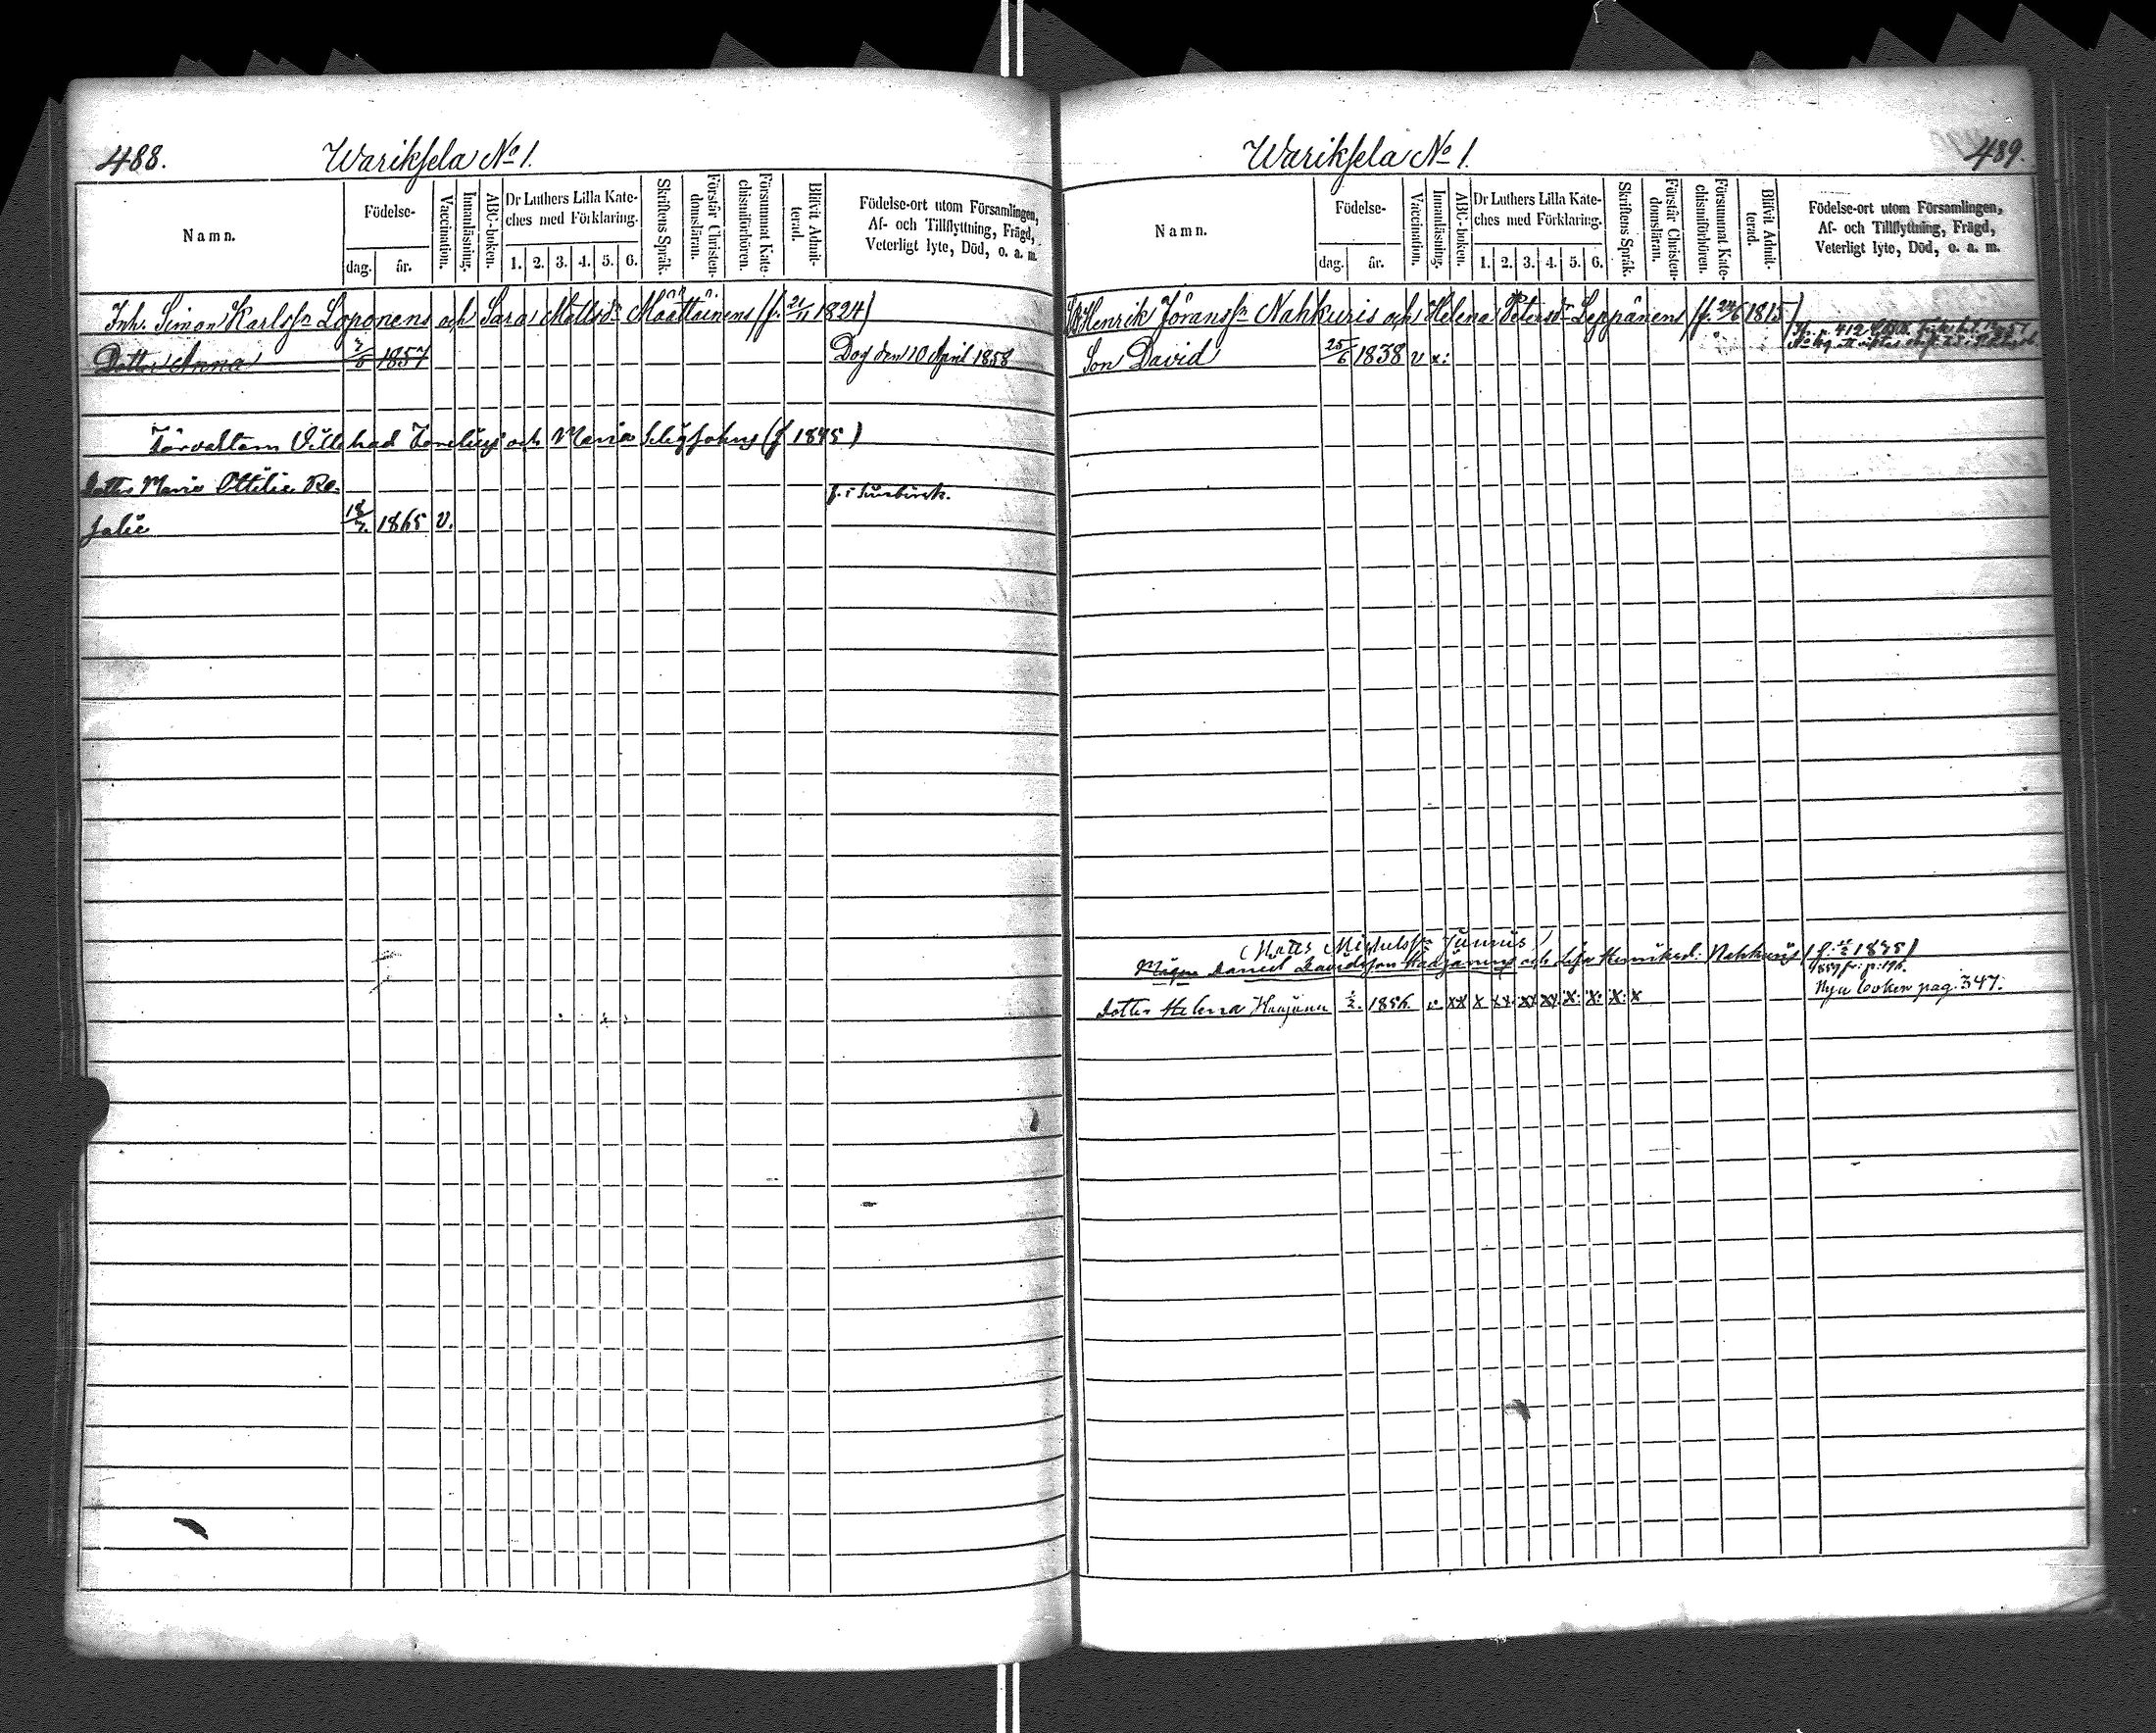 488.
Wariksela No 1.
Namn.
Födelse-
dag.
år.
Vaccination.
Innanläsning.
ABC-boken.
Dr Luthers Lilla Kate-
ches med Förklaring.
1. 2. 3. 4. 5. 6.
Skriftens Språk.
Förstår Christen-
domsläran.
Försummat Kate-
chismiförhören.
Blifvit Admit-
terad.
Födelse-ort utom Församlingen,
Af- och Tillflyttning, Frägd,
Veterligt lyte, Död, o. a. m.
Inh. Simon Karlsson Loponens och Sara Mattsdr Määttäinens (f. 21/11 1824)
Dotter Anna 1857 Dog den 10 April 1858
och Maria (f 1845)
Dotter Maria Ottilia Ro-
salie 18/7 1865 v.
489.
Wariksela No 1.
Namn.
Födelse-
dag.
år.
Vaccination.
Innanläsning.
ABC-boken.
Dr Luthers Lilla Kate-
ches med Förklaring.
1. 2. 3. 4. 5. 6.
Skriftens Språk.
Förstår Christen-
domsläran.
Försummat Kate-
chismiförhören.
Blifvit Admit-
terad.
Födelse-ort utom Församlingen,
Af- och Tillflyttning, Frägd,
Veterligt lyte, Död, o. a. m.
Henrik Jöranss. Nahkuris och Helena Petersd. Leppänens (f. 24/6 1815)
Son David 25/6 1838 v x:
(Matts Michelss.
Daniel Davidsson och Lisa Henriksd. Nahkuris (f. 1835)
Dotter Helena 1856 v. xx x xx xx xx x: x: x: x Nya boken pag. 347.